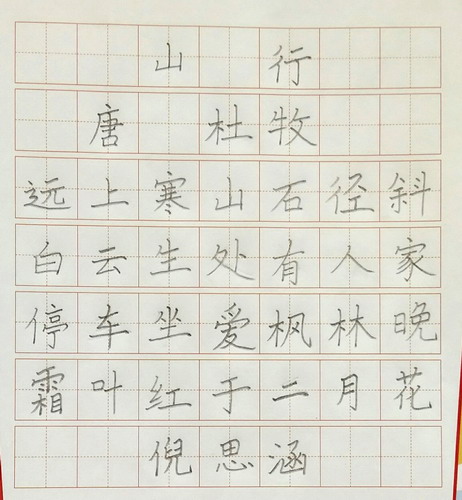 山行
唐 杜牧
远上寒山石径斜
白云生处有人家
停车坐爱枫林晚
霜叶红于二月花
倪思涵